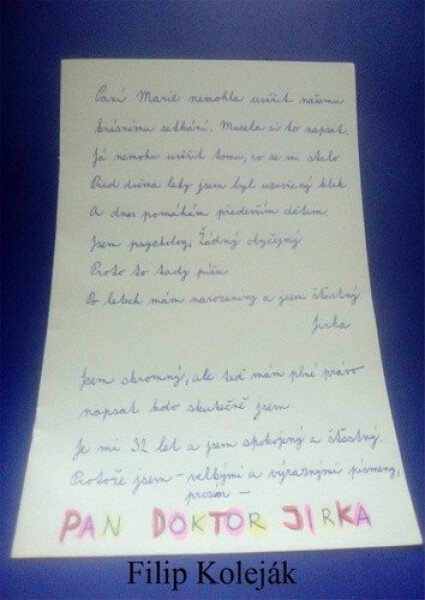 Paní Marie nemohla uvěřit našemu
krásnému setkání. Musela si to napsat.
Já nemohu uvěřit tomu, co se mi stalo.
Před dvěma lety jsem byl uzavřený kluk.
A dnes pomáhám především dětem.
Jsem psycholog. Žádný obyčejný.
Proto to tady píšu.
Po letech mám narozeniny a jsem šťastný.
Jirka
Jsem skromný, ale teď mám plné právo
napsat kdo skutečně jsem.
Je mi 32 let a jsem spokojený a šťastný.
Protože jsem - velkými a výraznými písmeny,
prosím -
PAN DOKTOR JIRKA
Filip Koleják